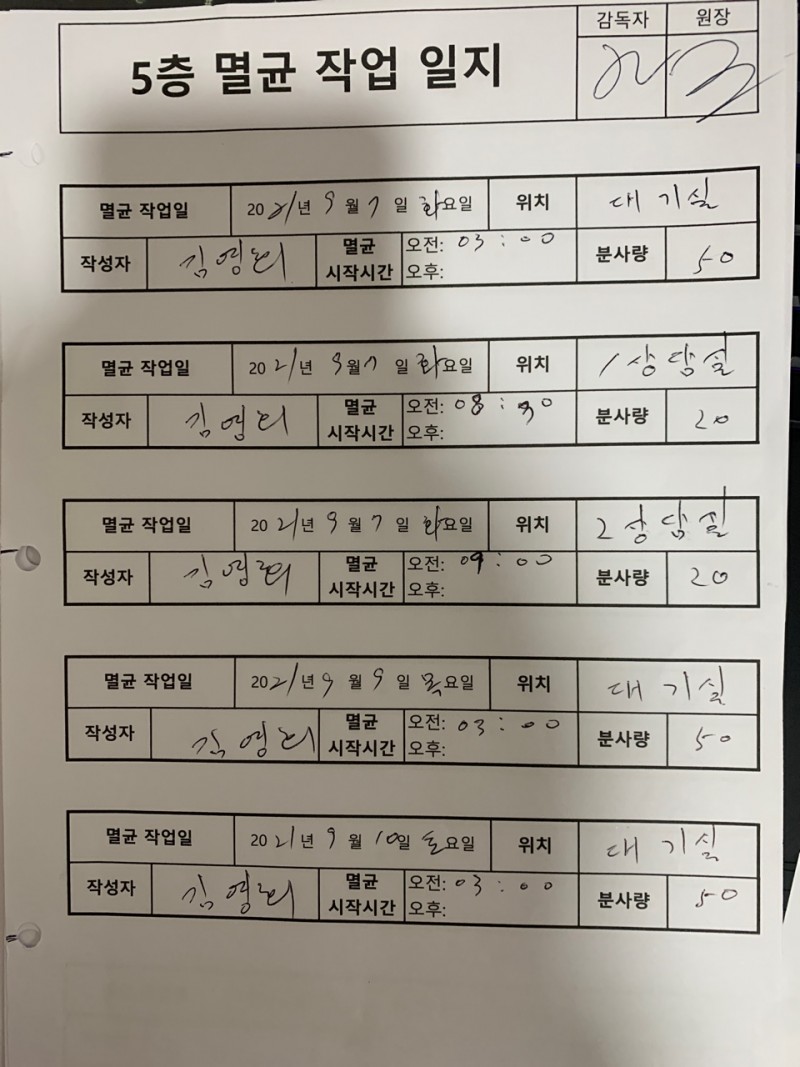 감독자 원장
5층 멸균 작업 일지
멸균 작업일 2021년 9월 7일 화요일 위치 대기실
작성자 멸균 시작시간 오전: 03:00 오후: 분사량 50
멸균 작업일 2021년 9월 7일 화요일 위치 1상담실
작성자 멸균 시작시간 오전: 08:30 오후: 분사량 20
멸균 작업일 2021년 9월 7일 화요일 위치 2상담실
작성자 멸균 시작시간 오전: 09:00 오후: 분사량 20
멸균 작업일 2021년 9월 9일 목요일 위치 대기실
작성자 멸균 시작시간 오전: 03:00 오후: 분사량 50
멸균 작업일 2021년 9월 10일 토요일 위치 대기실
작성자 멸균 시작시간 오전: 03:00 오후: 분사량 50